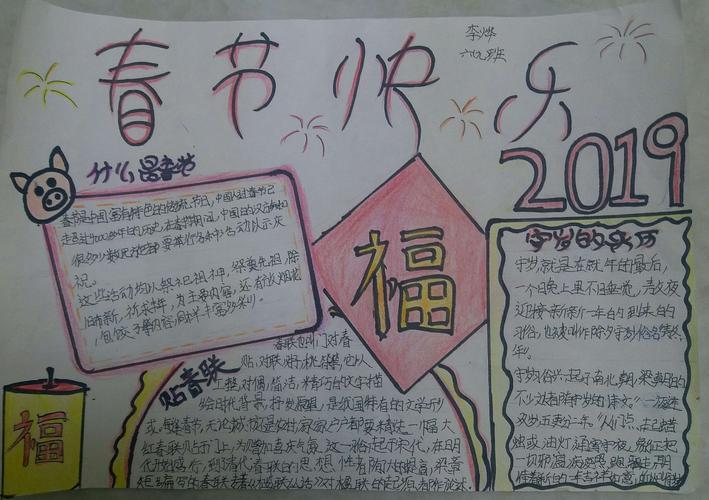 春节快乐
李烨
六九班
2019
什么是春节
春节是中国富有特色的传统节日,中国人过春节已
走超过4000多年的历史,在春节期间,中国的汉族和
很多少数民族都要举行各种活动以示庆
祝。
这些活动均以祭祀祖神、祭奠先祖、除
旧布新、祈求丰年为主要内容
包饺子等内容
福
福
贴春联
春联也叫门对春
贴、对联、对子、桃符等,它以
工整、对偶、简洁、精巧的文字描
绘时代背景,抒发愿望,是我国特有的文学形
式。每逢春节,无论城市还是农村,家家户户都要精选一幅大
红春联贴于门上,为节日增加喜庆气氛。这一习俗起于宋代,在明
代开始盛行,到清代,春联的思想性有
守岁的来历
守岁就是在就年的最后
一个晚上里不睡觉,熬夜
迎接新一年的到来的
习俗,也叫作除夕守岁,俗名熬
年。
守岁俗兴起于南北朝,梁朝的
不少文人都有守岁的诗文。"一夜连
双岁,五更分二年。"人们点起蜡
烛或油灯,通宵守夜,象征把
一切邪瘟病疫照跑驱走,期
待着新的一年吉祥如意